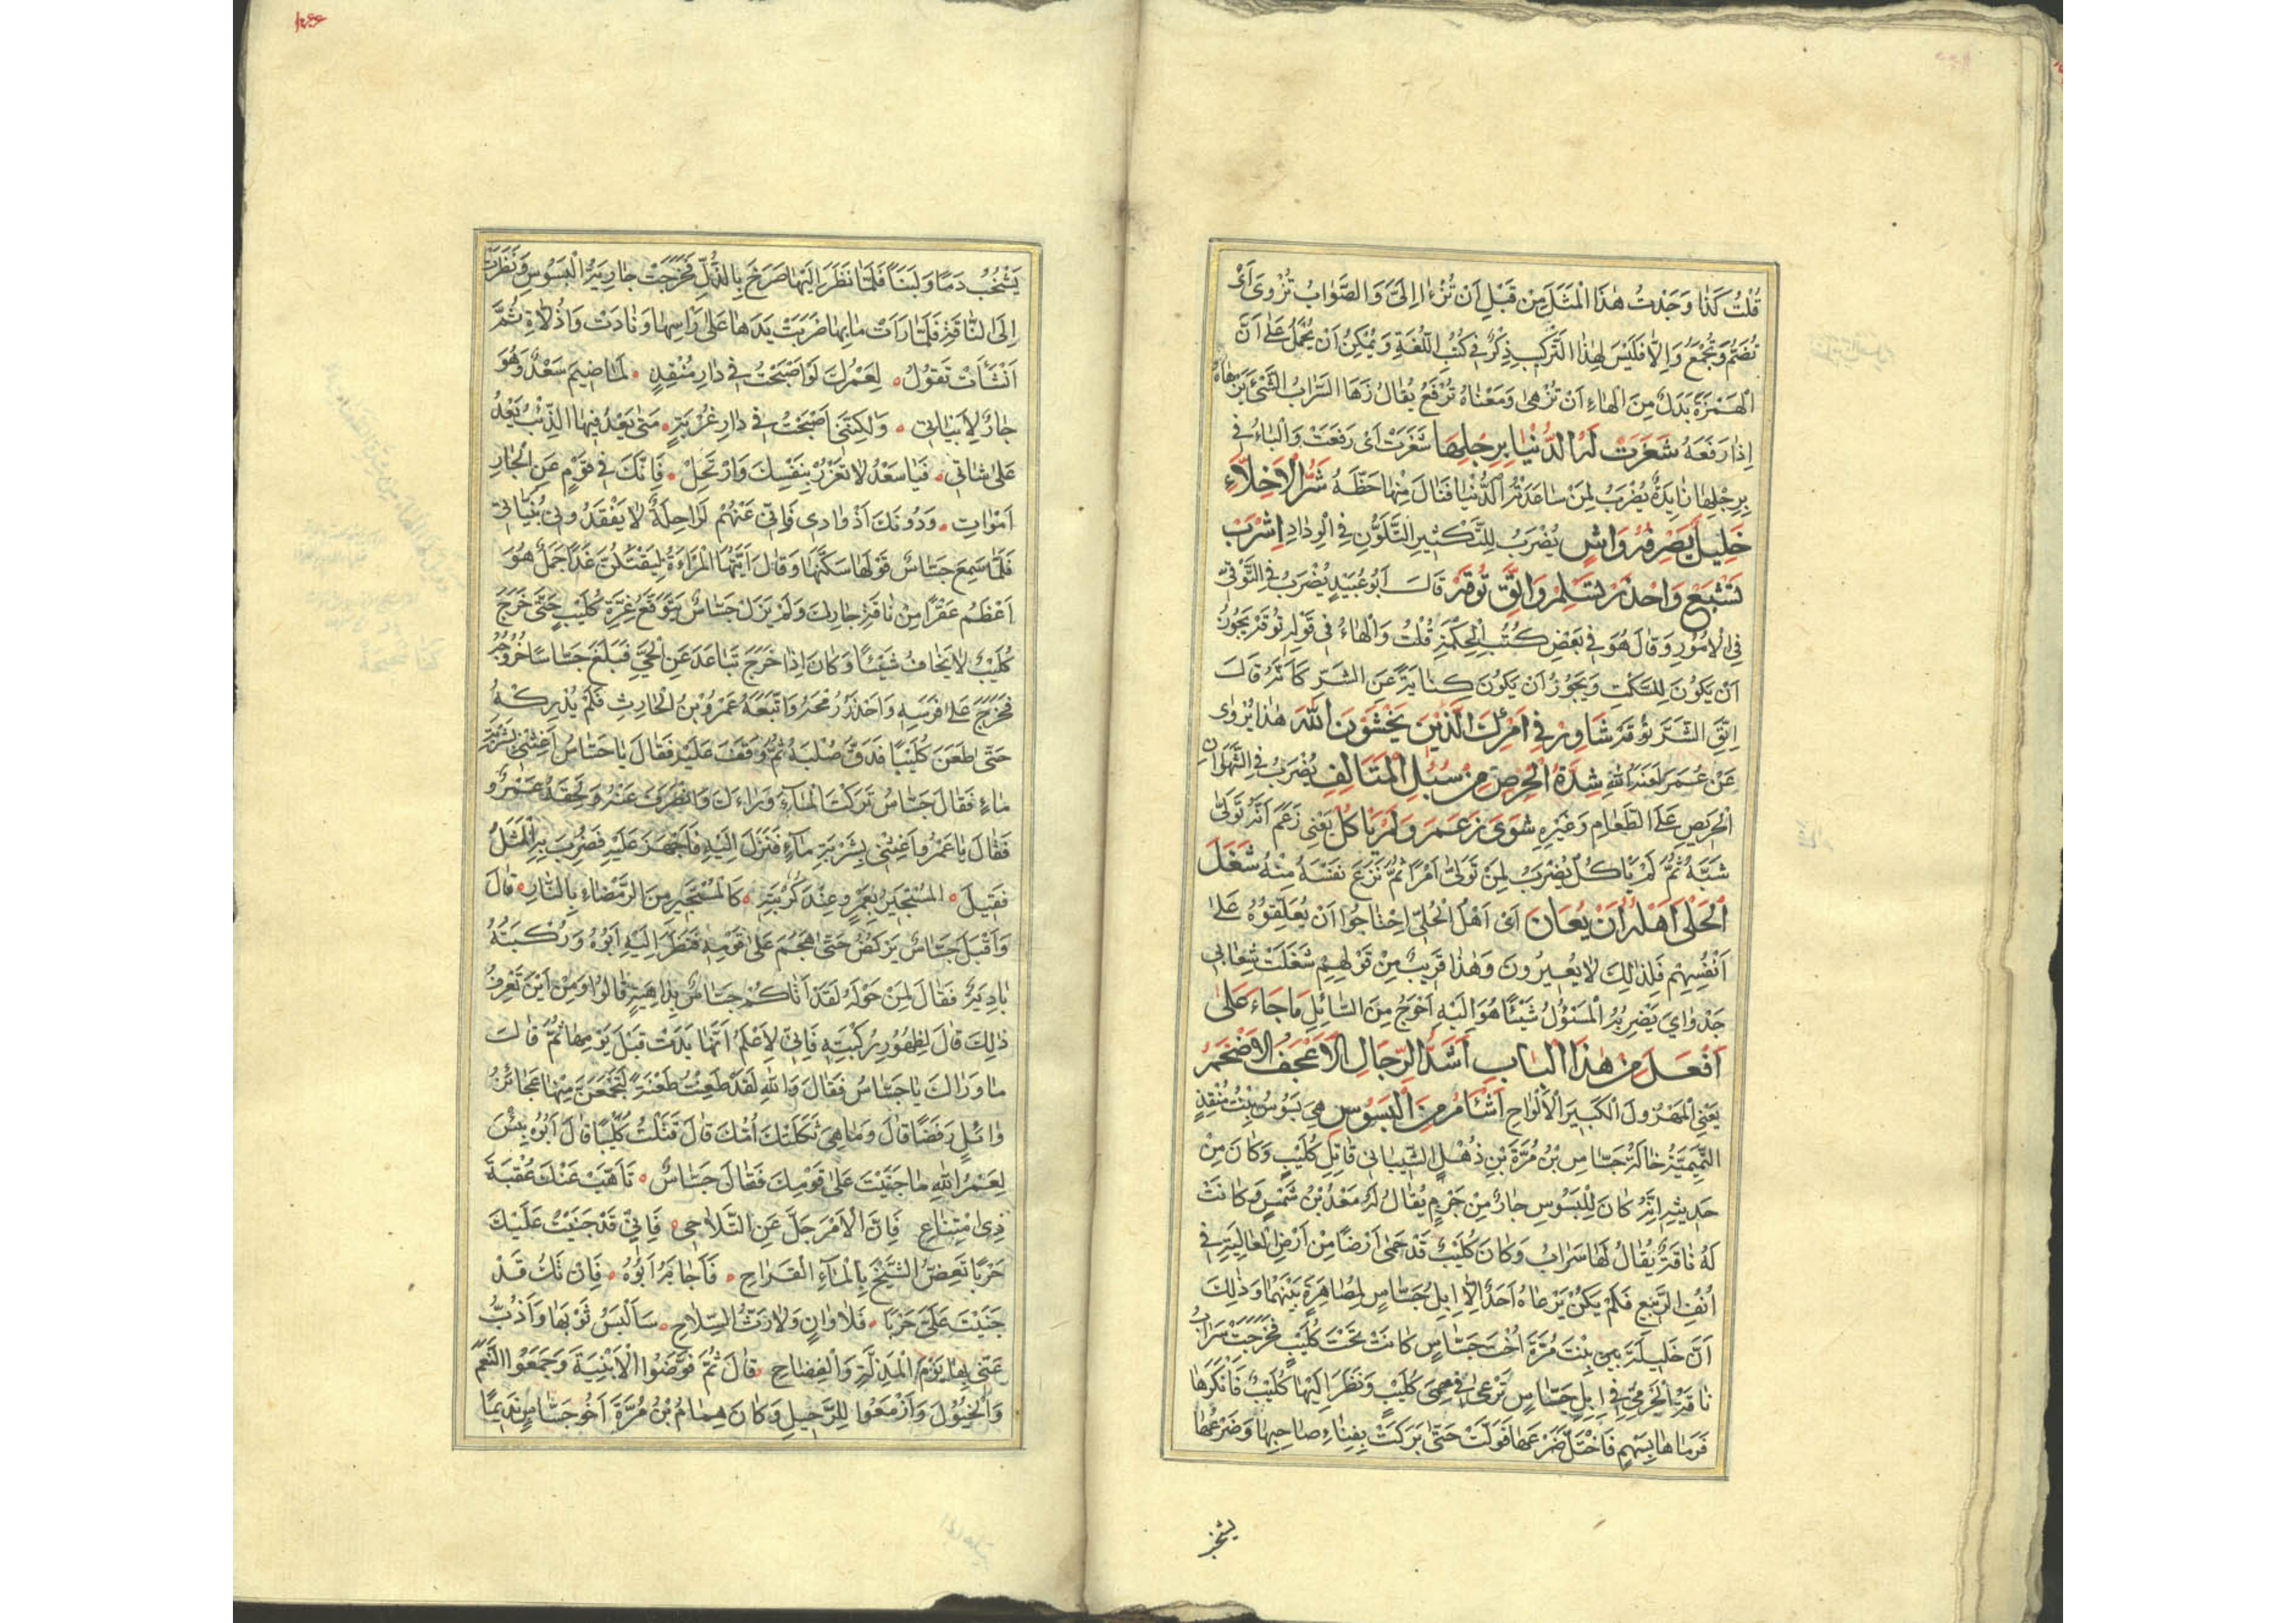 قُلْتُ كَذَا وَجَدْتُ هٰذَا الْمَثَلَ مِنْ قَبْلِ اَنْ تُزْءا اِلَىَّ وَالصَّوَابُ تُزْوٰى اَىْ
تُضَمُّ وَتُجْمَعُ وَاِلَّا فَلَيْسَ لِهٰذَا التَّرْكِيبِ ذِكْرٌ فِى كُتُبِ اللُّغَةِ وَيُمْكِنُ اَنْ يُحْمَلَ عَلٰى اَنَّ
الْهَمْزَةَ بَدَلٌ مِنَ الْهَاءِ اَنْ تُزْهٰى وَمَعْنَاهُ تُرْفَعُ يُقَالُ زَهَا السَّرَابُ الشَّىْءَ يَزْهَاهُ
اِذَا رَفَعَهُ شَغَرَتْ لَهُ الدُّنْيَا بِرِجْلِهَا شَغَرَتْ اَىْ رَفَعَتْ وَالْبَاءُ فِى
بِرِجْلِهَا زَايِدَةٌ يُضْرَبُ لِمَنْ سَاعَدَتْهُ الدُّنْيَا فَنَالَ مِنْهَا حَظَّهُ شَرُّ الْاَخِلَّاءِ
خَلِيلٌ يَصْرِفُهُ وَاشٍ يُضْرَبُ لِلتَّكْثِيرِ التَّلَوُّنِ فِى الْوِدَادِ اِشْرَبْ
تَشْبَعْ وَاحْذَرْ تَسْلَمْ وَاتَّقِ تُوقَهْ قَالَ اَبُو عُبَيْدٍ يُضْرَبُ فِى التَّوَقِّى
فِى الْاُمُورِ وَقَالَ هُوَ فِى بَعْضِ كُتُبِ الْحِكْمَةِ قُلْتُ وَالْهَاءُ فِى قَوْلِهِ تُوقَهْ يَجُوزُ
اَنْ يَكُونَ لِلسَّكْتِ وَيَجُوزُ اَنْ يَكُونَ كِنَايَةً عَنِ الشَّرِّ كَاَنَّهُ قَالَ
اِتَّقِ الشَّرَّ تُوقَهْ شَاوِرْ فِى اَمْرِكَ الَّذِينَ يَخْشَوْنَ اللّٰهَ هٰذَا يُرْوٰى
عَنْ عُمَرَ شِدَّةُ الْحِرْصِ مِنْ سُبُلِ الْمَتَالِفِ يُضْرَبُ فِى الشَّهْوَانِ
الْحَرِيصِ عَلَى الطَّعَامِ وَغَيْرِهِ شَوٰى زَعَمَ وَلَمْ يَاْكُلْ يَعْنِى زَعَمَ اَنَّهُ تَوَلّٰى
شَيَّهُ ثُمَّ لَمْ يَاْكُلْ يُضْرَبُ لِمَنْ تَوَلّٰى اَمْرًا ثُمَّ نَزَعَ نَفْسَهُ مِنْهُ شَغَلَ
الْحَلْىَ اَهْلُهُ اَنْ يُعَارَ اَىْ اَهْلُ الْحُلِىِّ اِحْتَاجُوا اَنْ يُعَلِّقُوهُ عَلٰى
اَنْفُسِهِمْ فَلِذٰلِكَ لَا يُعِيرُونَ وَهٰذَا قَرِيبٌ مِنْ قَوْلِهِمْ شَغَلَتْ شِعَابِى
جَدْوَاىَ يَضْرِبُهُ الْمَسْؤُلُ شَيْئًا هُوَ اِلَيْهِ اَحْوَجُ مِنَ السَّائِلِ مَا جَاءَ عَلٰى
اَفْعَلَ مِنْ هٰذَا الْبَابِ اَشَدُّ الرِّجَالِ الْاَعْجَفُ الْاَضْخَمُ
يَعْنِى الْمَهْزُولَ الْكَبِيرَ الْاَلْوَاحِ اَشْاَمُ مِنَ الْبَسُوسِ هِىَ بَسُوسُ بِنْتُ مُنْقِذٍ
التَّمِيمِيَّةُ خَالَةُ جَسَّاسِ بْنِ مُرَّةَ بْنِ ذُهْلٍ الشَّيْبَانِى قَاتِلِ كُلَيْبٍ وَكَانَ مِنْ
حَدِيثِهِ اَنَّهُ كَانَ لِلْبَسُوسِ جَارٌ مِنْ جَرْمٍ يُقَالُ لَهُ سَعْدُ بْنُ شَمْسٍ وَكَانَتْ
لَهُ نَاقَةٌ يُقَالُ لَهَا سَرَابُ وَكَانَ كُلَيْبٌ قَدْ حَمٰى اَرْضًا مِنْ اَرْضِ الْعَالِيَةِ فِى
اُنُفِ الرَّبِيعِ فَلَمْ يَكُنْ يَرْعَاهُ اَحَدٌ اِلَّا اِبِلُ جَسَّاسٍ لِمُصَاهَرَةٍ بَيْنَهُمَا وَذٰلِكَ
اَنَّ جَلِيلَةَ بِنْتَ مُرَّةَ اُخْتَ جَسَّاسٍ كَانَتْ تَحْتَ كُلَيْبٍ فَخَرَجَتْ سَرَابُ
نَاقَةُ الْجَرْمِىِّ فِى اِبِلِ جَسَّاسٍ تَرْعٰى فِى حِمٰى كُلَيْبٍ وَنَظَرَ اِلَيْهَا كُلَيْبٌ فَاَنْكَرَهَا
فَرَمَاهَا بِسَهْمٍ فَاخْتَلَّ ضَرْعَهَا فَوَلَّتْ حَتّٰى بَرَكَتْ بِفِنَاءِ صَاحِبِهَا وَضَرْعُهَا
يشخب
يَشْخُبُ دَمًا وَلَبَنًا فَلَمَّا نَظَرَ اِلَيْهَا صَرَخَ بِالذُّلِّ فَخَرَجَتْ جَارِيَةُ الْبَسُوسِ وَنَظَرَتْ
اِلَى النَّاقَةِ فَلَمَّا رَاَتْ مَا بِهَا ضَرَبَتْ يَدَهَا عَلٰى رَاْسِهَا وَنَادَتْ وَاذُلَّاهُ ثُمَّ
اَنْشَاَتْ تَقُولُ لِعَمْرُكَ لَوْ اَصْبَحْتُ فِى دَارِ مُنْقِذٍ لَمَا ضِيمَ سَعْدٌ وَهُوَ
جَارٌ لِاَبْيَاتِى وَلٰكِنَّنِى اَصْبَحْتُ فِى دَارِ غُرْبَةٍ مَتٰى يَعْدُ فِيهَا الذِّئْبُ يَعْدُ
عَلٰى شَاتِى فَيَا سَعْدُ لَا تَغْرُرْ بِنَفْسِكَ وَارْتَحِلْ فَاِنَّكَ فِى قَوْمٍ عَنِ الْجَارِ
اَمْوَاتِ وَدُونَكَ اَذْوَادِى فَاِنِّى عَنْهُمْ لَرَاحِلَةٌ لَا يَفْقِدُونِى بُنَيَّاتِى
فَلَمَّا سَمِعَ جَسَّاسٌ قَوْلَهَا سَكَّنَهَا وَقَالَ اَيَّتُهَا الْمَرْاَةُ لَيُقْتَلَنَّ غَدًا جَمَلٌ هُوَ
اَعْظَمُ عَقْرًا مِنْ نَاقَةِ جَارِكِ وَلَمْ يَزَلْ جَسَّاسٌ يَتَوَقَّعُ غِرَّةَ كُلَيْبٍ حَتّٰى خَرَجَ
كُلَيْبٌ لَا يَخَافُ شَيْئًا وَكَانَ اِذَا خَرَجَ تَبَاعَدَ عَنِ الْحَىِّ فَبَلَغَ جَسَّاسًا خُرُوجُهُ
فَخَرَجَ عَلٰى فَرَسِهِ وَاَخَذَ رُمْحَهُ وَاتَّبَعَهُ عَمْرُو بْنُ الْحَارِثِ فَلَمْ يُدْرِكْهُ
حَتّٰى طَعَنَ كُلَيْبًا فَدَقَّ صُلْبَهُ ثُمَّ وَقَفَ عَلَيْهِ فَقَالَ يَا جَسَّاسُ اَغِثْنِى بِشَرْبَةِ
مَاءٍ فَقَالَ جَسَّاسٌ تَرَكْتَ الْمَاءَ وَرَاءَكَ وَانْصَرَفَ عَنْهُ وَلَحِقَهُ عَمْرٌو
فَقَالَ يَا عَمْرُو اَغِثْنِى بِشَرْبَةِ مَاءٍ فَنَزَلَ اِلَيْهِ فَاَجْهَزَ عَلَيْهِ فَضُرِبَ بِهِ الْمَثَلُ
فَقِيلَ الْمُسْتَجِيرُ بِعَمْرٍو عِنْدَ كُرْبَتِهِ كَالْمُسْتَجِيرِ مِنَ الرَّمْضَاءِ بِالنَّارِ قَالَ
وَاَقْبَلَ جَسَّاسٌ يَرْكُضُ حَتّٰى هَجَمَ عَلٰى قَوْمِهِ فَنَظَرَ اِلَيْهِ اَبُوهُ وَرُكْبَتُهُ
بَادِيَةٌ فَقَالَ لِمَنْ حَوْلَهُ لَقَدْ اَتَاكُمْ جَسَّاسٌ بِدَاهِيَةٍ قَالُوا وَمِنْ اَيْنَ تَعْرِفُ
ذٰلِكَ قَالَ لِظُهُورِ رُكْبَتِهِ فَاِنِّى لَاَعْلَمُ اَنَّهَا بَدَتْ قَبْلَ يَوْمِهَا ثُمَّ قَالَ
مَا وَرَاكَ يَا جَسَّاسُ فَقَالَ وَاللّٰهِ لَقَدْ طَعَنْتُ طَعْنَةً لَتَجْمَعَنَّ مِنْهَا عَجَائِزُ
وَائِلٍ رَقْصًا قَالَ وَمَا هِىَ ثَكِلَتْكَ اُمُّكَ قَالَ قَتَلْتُ كُلَيْبًا قَالَ اَبُوهُ بِئْسَ
لِعَمْرُ اللّٰهِ مَا جَنَيْتَ عَلٰى قَوْمِكَ فَقَالَ جَسَّاسٌ تَاَهَّبْ عَنْكَ عُقْبَةَ
ذِى امْتِنَاعٍ فَاِنَّ الْاَمْرَ جَلَّ عَنِ التَّلَاحِى فَاِنِّى قَدْ جَنَيْتُ عَلَيْكَ
حَرْبًا تُغِصُّ الشَّيْخَ بِالْمَاءِ الْقَرَاحِ فَاَجَابَهُ اَبُوهُ فَاِنْ تَكُ قَدْ
جَنَيْتَ عَلَىَّ حَرْبًا فَلَا وَانٍ وَلَا رَثُّ السِّلَاحِ سَاَلْبَسُ ثَوْبَهَا وَاَذُبُّ
عَنِّى بِهَا يَوْمَ الْمَذَلَّةِ وَالْفِضَاحِ قَالَ ثُمَّ قَوَّضُوا الْاَبْنِيَةَ وَجَمَعُوا النَّعَمَ
وَالْخُيُولَ وَاَزْمَعُوا لِلرَّحِيلِ وَكَانَ هَمَّامُ بْنُ مُرَّةَ اَخُو جَسَّاسٍ نَدِيمًا